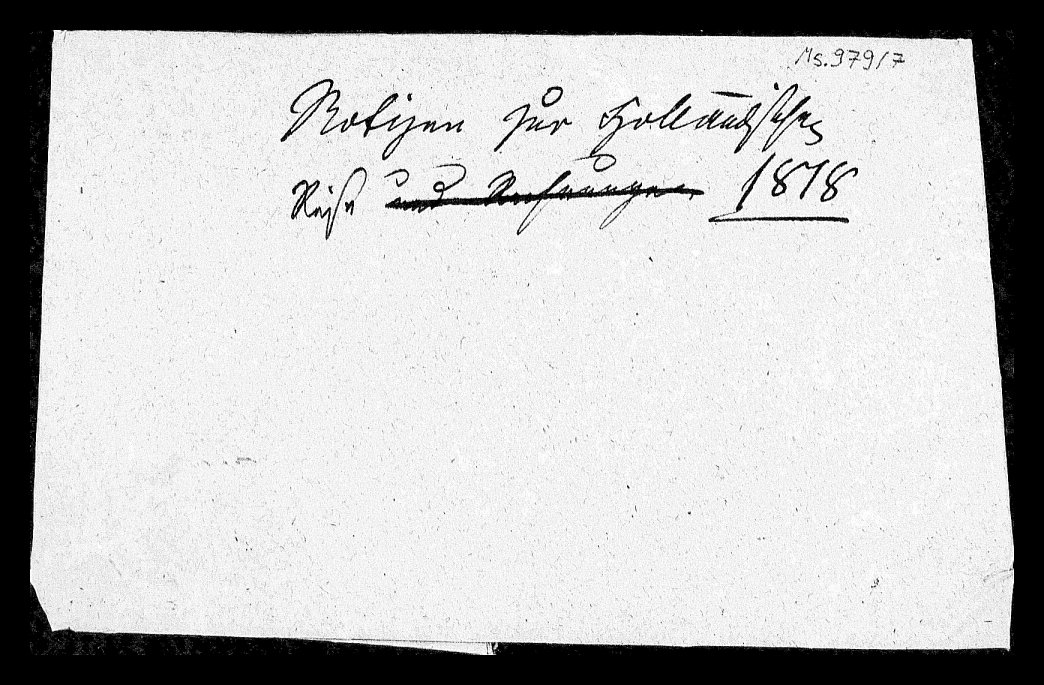 Ms. 979/7
Notizen zur Holländischen
Reise und Rechnungen 1878